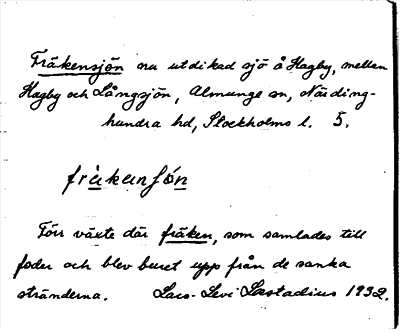 Fräkensjön nu utdikad sjö å Hagby, mellan
Hagby och Långsjön, Almunge sn, Närding-
hundra hd, Stockholms l. 5.
fràkanʃón
Förr växte där fräken, som samlades till
foder och blev buret upp från de sanka
stränderna. Lars-Levi Læstadius 1932.